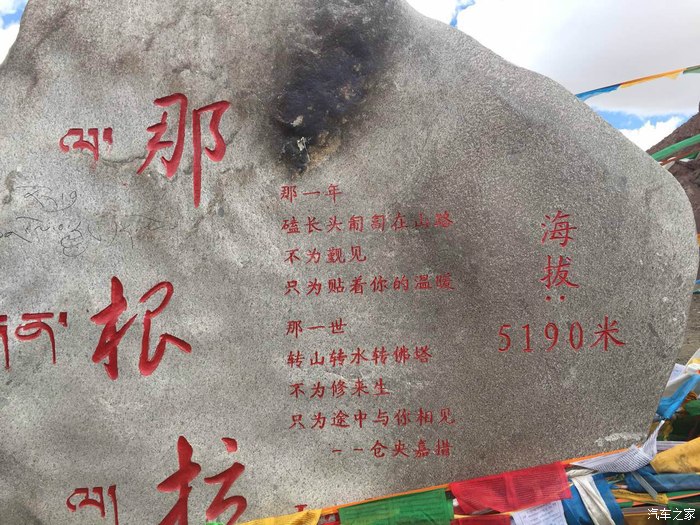 那根拉
海拔:
5190米
那一年
磕长头匍匐在山路
不为觐见
只为贴着你的温暖
那一世
转山转水转佛塔
不为修来生
只为途中与你相见
--仓央嘉措
汽车之家